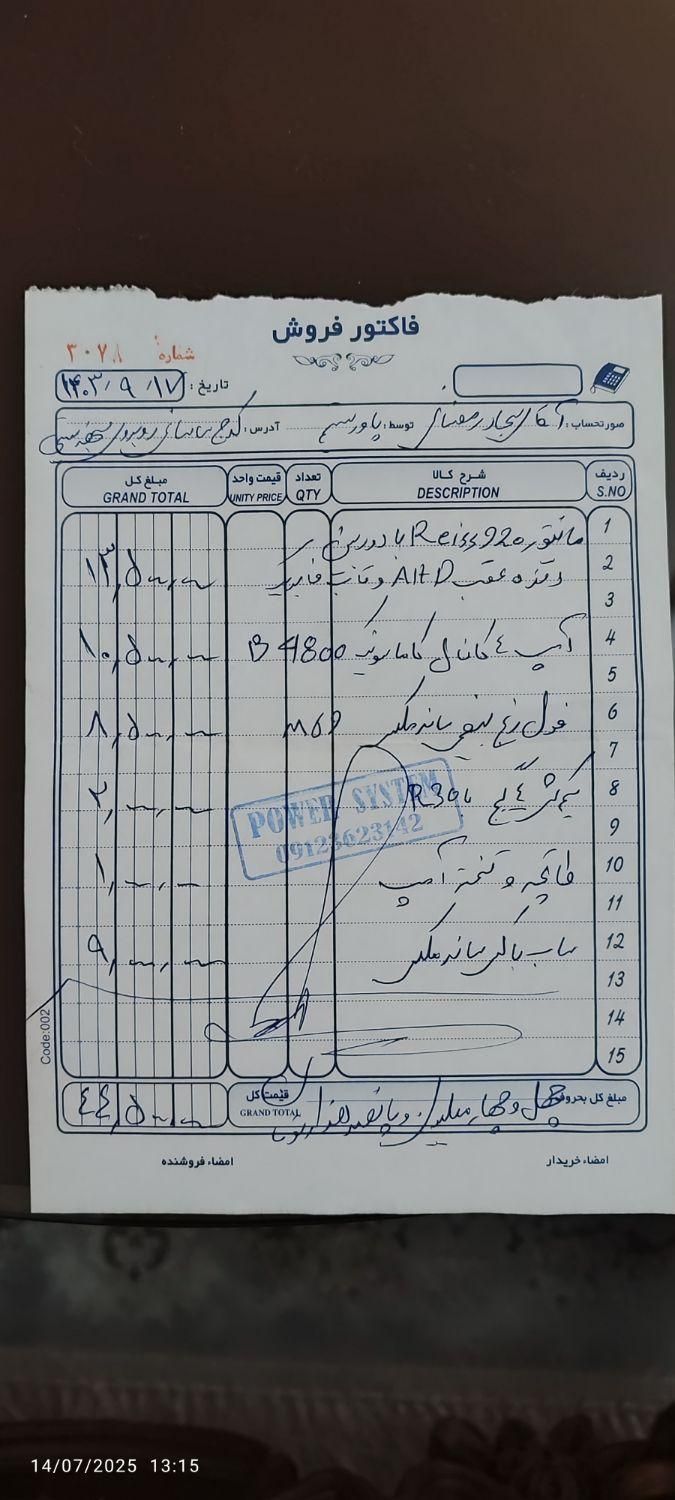 فاکتور فروش
شماره ۳۰۷۸
تاریخ : ۱۴۰۳/۹/۱۷
صورتحساب : آقای رمضانی توسط : پاورسیستم آدرس : کرج روبروی
ردیف S.NO شرح کالا DESCRIPTION تعداد QTY قیمت واحد UNITY PRICE مبلغ کل GRAND TOTAL
1 مانیتور Reiss 920 با دوربین
2 دنده عقب Alt D و قاب فابریک ۱۳,۵۰۰,۰۰۰
3
4 آمپ ٤ کانال B 4800 ۱۰,۵۰۰,۰۰۰
5
6 فول رنج M69 ۸,۵۰۰,۰۰۰
7
8 ٤ گیج R300 ۲,۰۰۰,۰۰۰
9
10 طاقچه و تخته آمپ ۱,۰۰۰,۰۰۰
11
12 ساب باکس ۹,۰۰۰,۰۰۰
13
14
15
POWER SYSTEM
09123623142
Code:002
مبلغ کل بحروف چهل و چهار میلیون و پانصد هزار تومان قیمت کل GRAND TOTAL ٤٤,۵۰۰,۰۰۰
امضاء خریدار امضاء فروشنده
14/07/2025 13:15